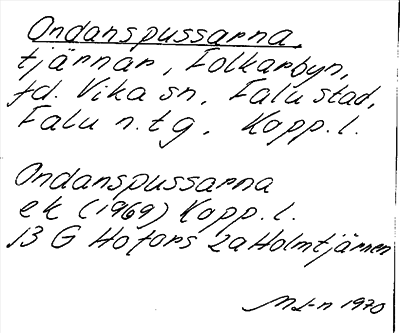 Ondanspussarna,
tjärnar, Folkarbyn,
fd. Vika sn, Falu stad,
Falu n.tg, Kopp.l.
Ondanspussarna
ek (1969) Kopp.l.
13 G Hofors 2a Holmtjärnen
ML-n 1970